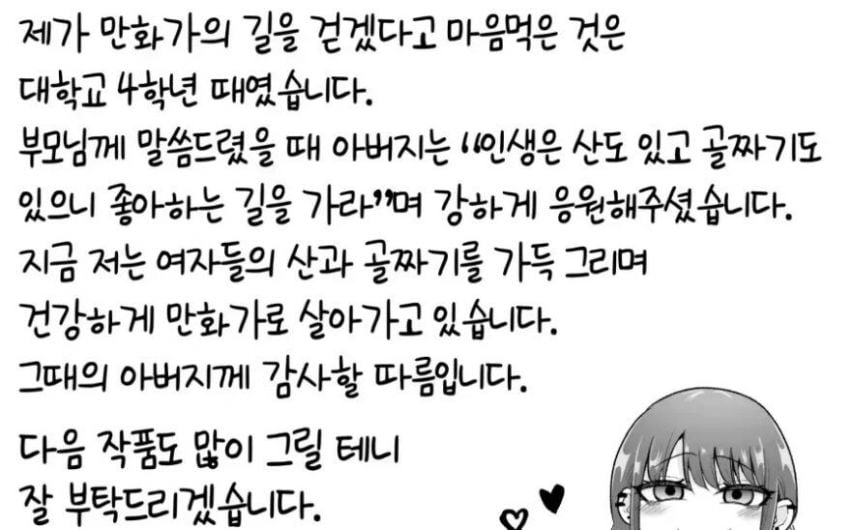 제가 만화가의 길을 걷겠다고 마음먹은 것은
대학교 4학년 때였습니다.
부모님께 말씀드렸을 때 아버지는 “인생은 산도 있고 골짜기도
있으니 좋아하는 길을 가라”며 강하게 응원해주셨습니다.
지금 저는 여자들의 산과 골짜기를 가득 그리며
건강하게 만화가로 살아가고 있습니다.
그때의 아버지께 감사할 따름입니다.
다음 작품도 많이 그릴 테니
잘 부탁드리겠습니다.